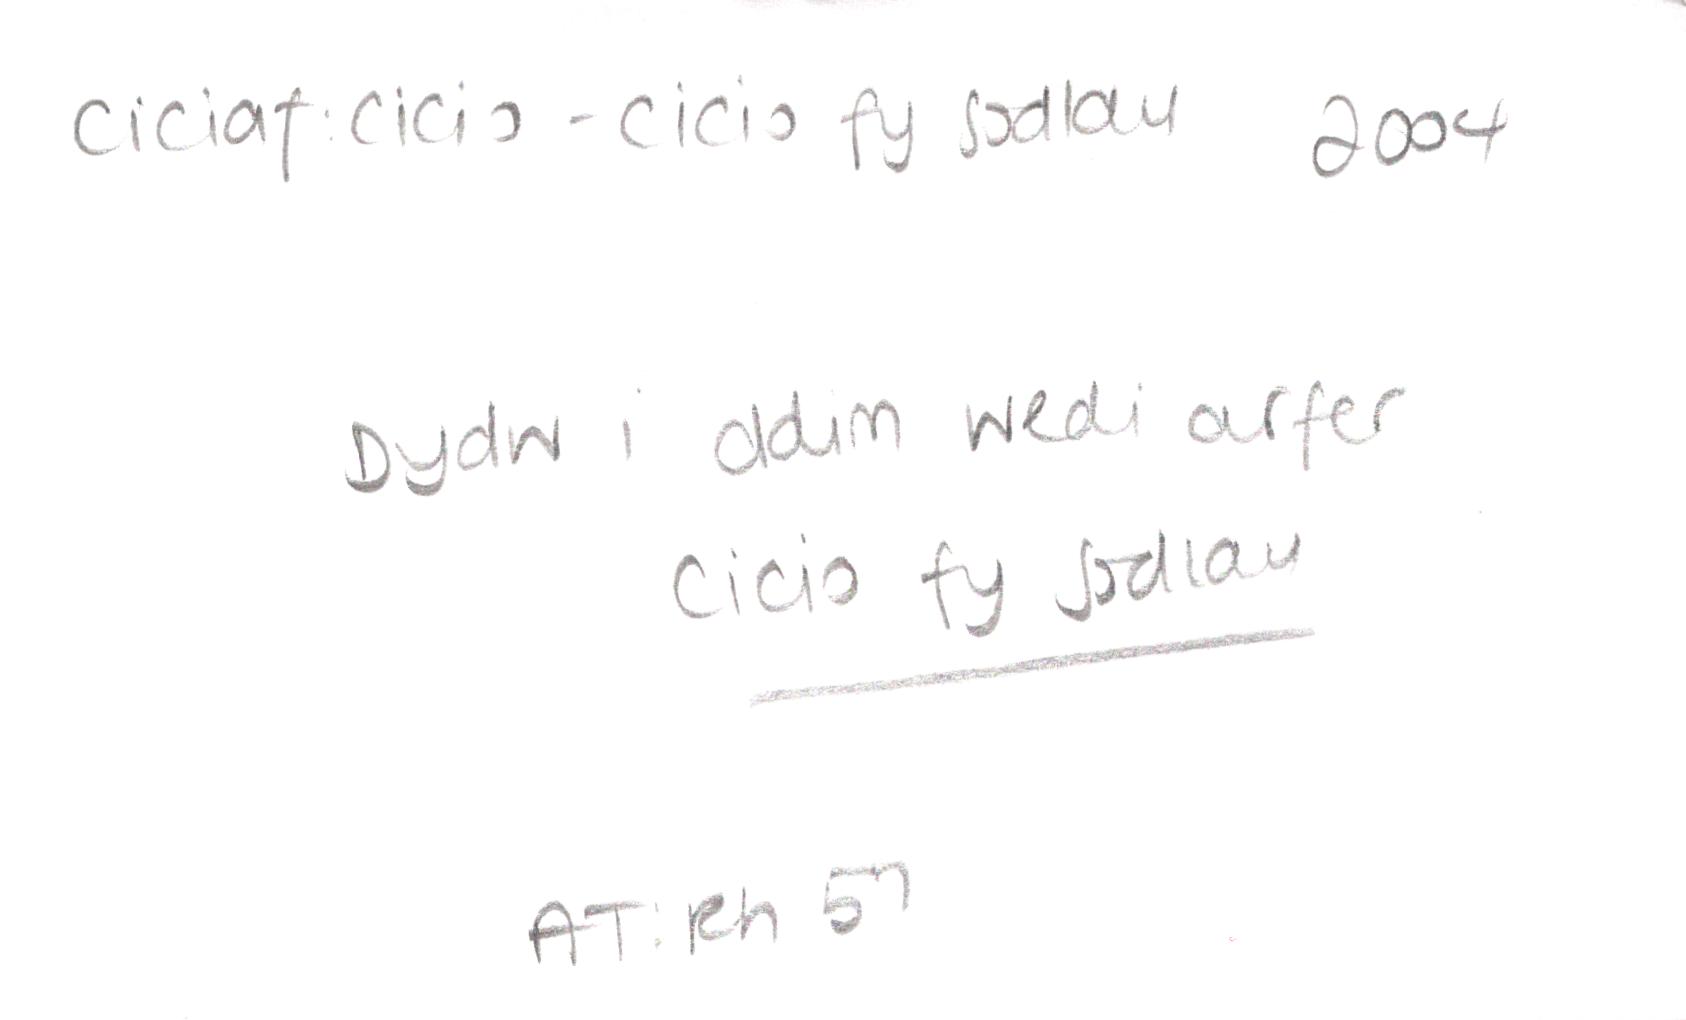 Ciciaf: Cicio - Cicio fy sodlau 2004
Dydw i ddim wedi arfer
Cicio fy sodlau
AT: Rh 57